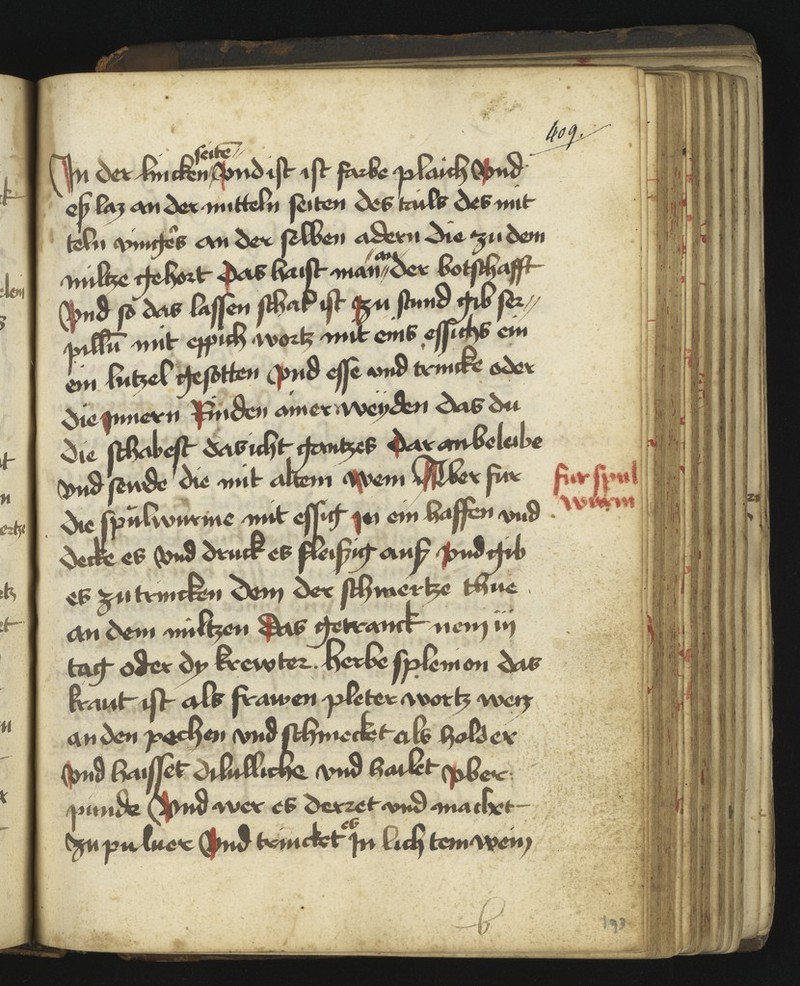 409.
seitē
In der lincken Vnd ist ist farbe plaich Vnd
eß laz an der mitteln seiten des tails des mit
teln vingers an der selben adern die zu dem
an
miltze gehort Das haist man der botschafft
Vnd so das lassen schat ist zu stund gib ser
pillū mit eppich wortz mit eins essichs ein
ein lutzel gesotten Vnd esse vnd trincke oder
die Innern Rinden ainer weyden das du
die schabest das icht gantzes Dar an beleibe
vnd seude die mit altem wein Aber fur
fur spul
wurm
die spulwurme mit essig In ein haffen vnd
decke es Vnd druck es fleißig auß vnd gib
es zu trincken dem der schmertze thue
an dem miltzen Das getranck nem iij
tag oder dy krewter. herbe splenion das
kraut ist als frawen pleter wortz
an den pechen vnd schmecket als holder
Vnd haisset vnd hailet vber
punde Vnd wer es derret vnd machet
es
zu puluer Vnd trincket In lich tem wein
b
193